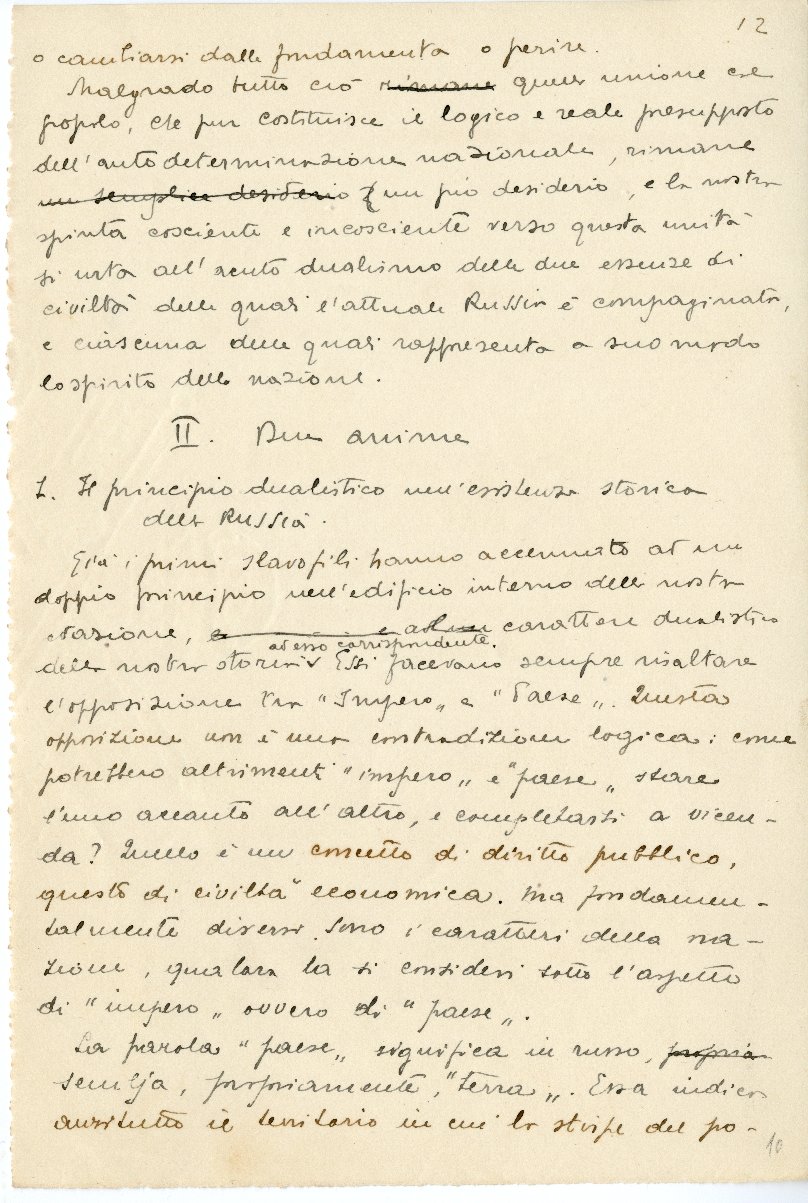 12
o cambiarsi dalle fondamenta o perire.
Malgrado tutto ciò rimane quella unione col
popolo, che pur costituisce il logico e reale presupposto
dell'autodeterminazione nazionale, rimane
un semplice desiderio un pio desiderio, e la nostra
spinta cosciente e incosciente verso questa unità
si urta all'acuto dualismo delle due essenze di
civiltà delle quali l'attuale Russia è compaginata,
e ciascuna delle quali rappresenta a suo modo
lo spirito della nazione.
II. Due anime
1. Il principio dualistico nell'esistenza storica
della Russia.
Già i primi slavofili hanno accennato ad un
doppio principio nell'edificio interno della nostra
Nazione, e e al carattere dualistico
ad esso corrispondente.
della nostra storia Essi facevano sempre risaltare
l'opposizione tra "Impero„ e "Paese„. Questa
opposizione non è una contradizione logica: come
potrebbero altrimenti "impero„ e "paese„ stare
l'uno accanto all'altro, e completarsi a vicen-
da? Quello è un concetto di diritto pubblico,
questo di civiltà economica. Ma fondamen-
talmente diversi sono i caratteri della na-
zione, qualora la si consideri sotto l'aspetto
di "impero„ ovvero di "paese„.
La parola "paese„ significa in russo, propria
semlja, propriamente, "terra„. Essa indica
anzitutto il territorio in cui la stirpe del po-
10